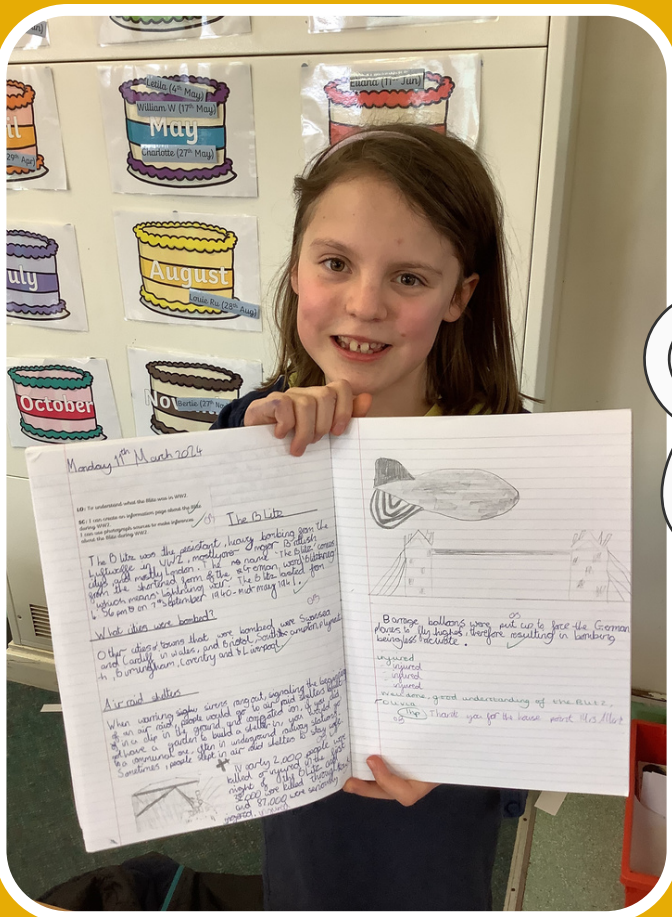 29th Apr)
Leila (4th May)
William W (17th May)
May
Charlotte (27th May)
(11th Jun)
August
Louie Ru (28th Aug)
October
Bertie (27th
Monday 11th March 2024
LO: To understand what the Blitz was in WW2
SC: I can create an information page about the Blitz
during WW2.
I can use photograph sources to make inferences
about the Blitz during WW2.
The Blitz
The Blitz was the persistant, heavy bombing from the
luftwaffe in WW2, mostly over major British
citys and mostly London. The name 'The Blitz' comes
from the shortened form of the German word Blitzkrieg
which means 'lightning war'. The Blitz lasted from
on 7th September 1940 - mid may 1941.
What cities were bombed?
Other cities & towns that were bombed were Swansea
and Cardiff in Wales, and Bristol, Southampton, Plymout
h, Birmingham, Coventry and Liverpool.
Air raid shelters
When warning sirens rang out, signaling the beginning
of an air raid, people would go to air raid shelters
in a dip in the ground, and if you did
not have a garden to build a shelter in you would go
to a communal one, often in underground railway stations.
Sometimes, people slept in air raid shelters to stay safe.
Nearly 2,000 people were
killed or injured in the first
night of the Blitz and
were killed throughout
and 87,000 were seriously
Barrage balloons were put up to force the German
planes to fly higher, therefore resulting in bombing
being less accurate.
injured
injured
injured
injured
good understanding of the Blitz,
Olivia
1hp Thank you for the house point